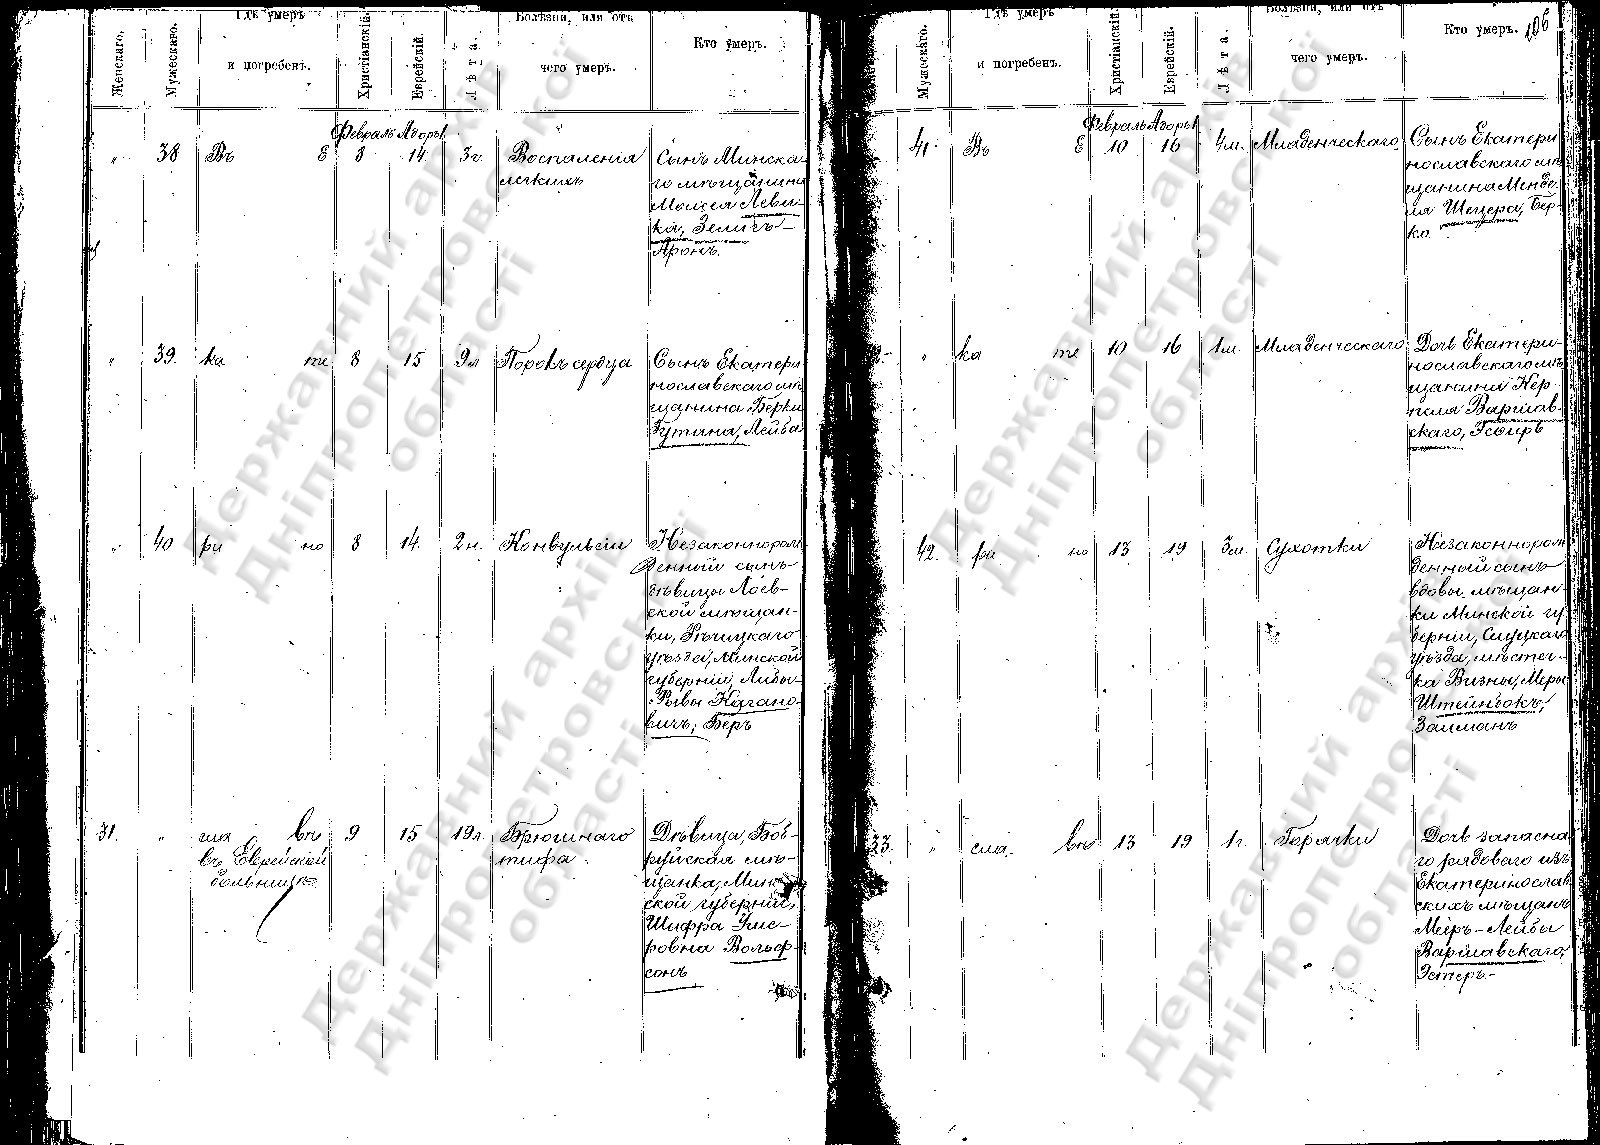 Женскаго.
Мужескаго.
Гдѣ умеръ
и погребенъ.
Христіанскій.
Еврейскій.
Лѣта.
Болѣзни, или отъ
чего умеръ.
Кто умеръ.
Февраль Адоръ
" 38 Въ Е 8 14 3г. Воспаленія
легкихъ
Сынъ Минска-
го мѣщанина
Мовшея Леви-
ка, Зеликъ-
Аронъ.
" 39. ка те 8 15 9м Порокъ сердца
Сынъ Екатери
нославскаго мѣ
щанина Берки
Гутина, Лейба
" 40 ри но 8 14. 2н. Конвульсіи
Незаконнорож
денный сынъ
дѣвицы Лоев-
ской мѣщан-
ки, Рѣчицкаго
уѣзда, Минской
губерніи, Либы-
Рывы Кагано-
вичъ, Беръ
31. " сла въ 9 15 19л. Брюшнаго
тифа.
въ Еврейской
больницѣ
Дѣвица, Боб-
руйская мѣ-
щанка, Минс
ской губерніи,
Шифра
ровна Вольф-
сонъ
Мужескаго.
Гдѣ умеръ
и погребенъ.
Христіанскій.
Еврейскій.
Лѣта.
Болѣзни, или отъ
чего умеръ.
Кто умеръ.
106
Февраль Адоръ
41. Въ Е 10 16 4м. Младенческаго
Сынъ Екатери
нославскаго мѣ
щанина Менде-
ля Шецера, Бер-
ко
" ка те 10 16 1м. Младенческаго
Дочь Екатери-
нославскаго мѣ
щанина Кер-
пеля Варшав-
скаго, Эсѳирь
42. ри но 13 19 3м. Сухотки
Незаконнорож
денный сынъ
вдовы, мѣщан-
ки Минской гу
берніи, Слуцкаго
уѣзда, мѣстеч-
ка Визны, Меры
Штейнбокъ,
Залманъ
33. " сла. въ 13 19 1г. Горячки
Дочь запасна
го рядоваго изъ
Екатеринослав
скихъ мѣщанъ
Мееръ-Лейбы
Варшавскаго,
Эстеръ.-
Державний архів
Дніпропетровської
області
Державний архів
Дніпропетровської
області
Державний архів
Дніпропетровської
області
Державний архів
Дніпропетровської
області